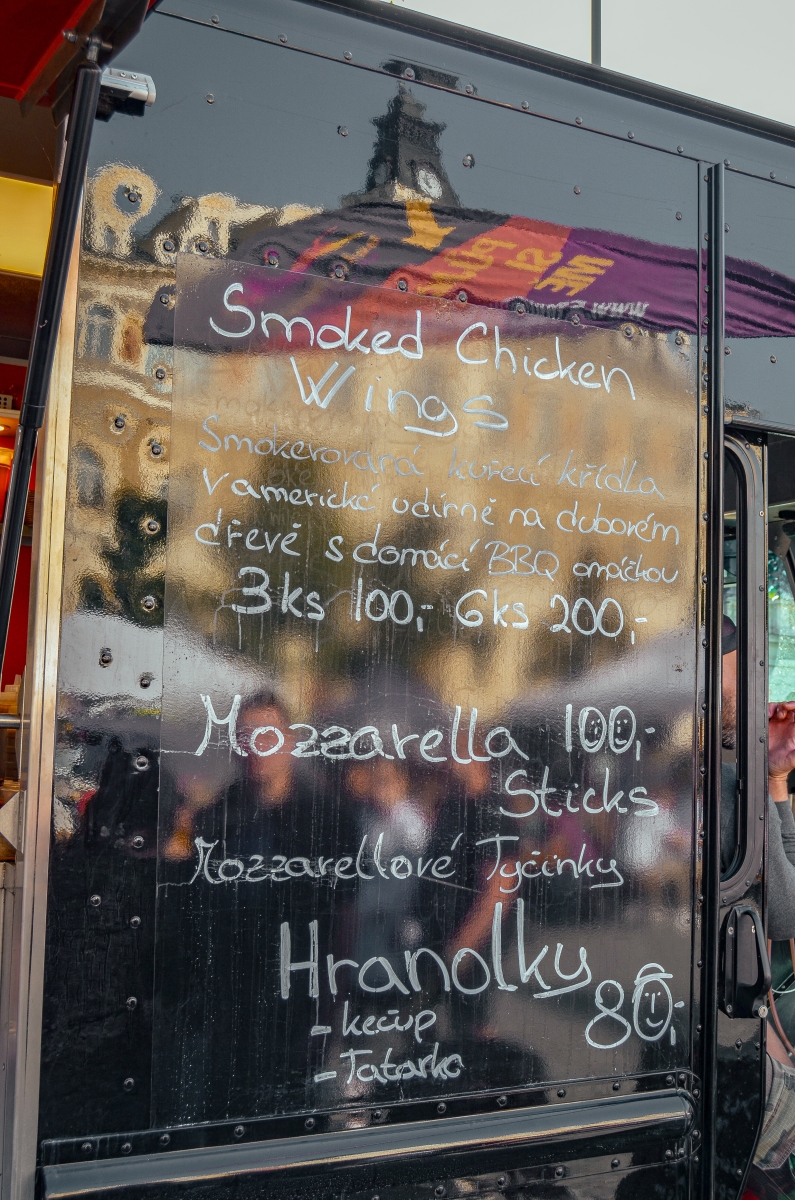 Smoked Chicken
Wings
Smokerovaná kuřecí křídla
v americké udírně na dubovém
dřevě s domácí BBQ omáčkou
3ks 100,- 6ks 200,-
Mozzarella 100,-
Sticks
Mozzarellové Tyčinky
Hranolky
80,-
- kečup
- Tatarka